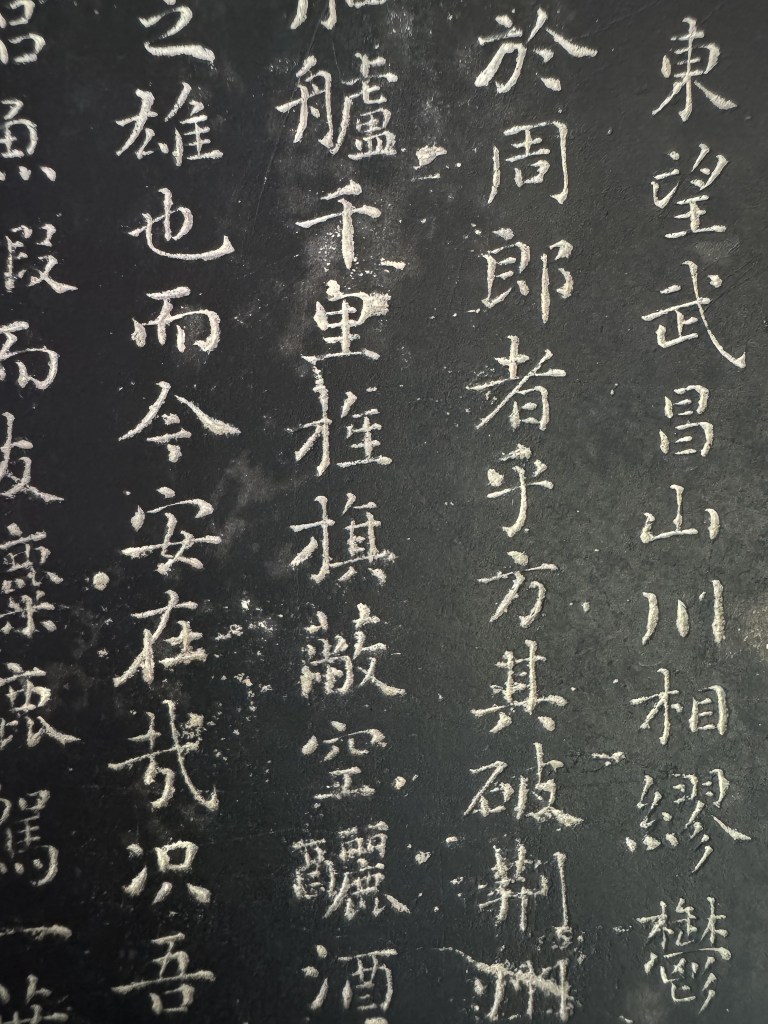 東望武昌山川相繆鬱
於周郎者乎方其破荆州
舳艫千里旌旗蔽空釃酒
之雄也而今安在哉况吾
侣魚鰕而友麋鹿駕一葉